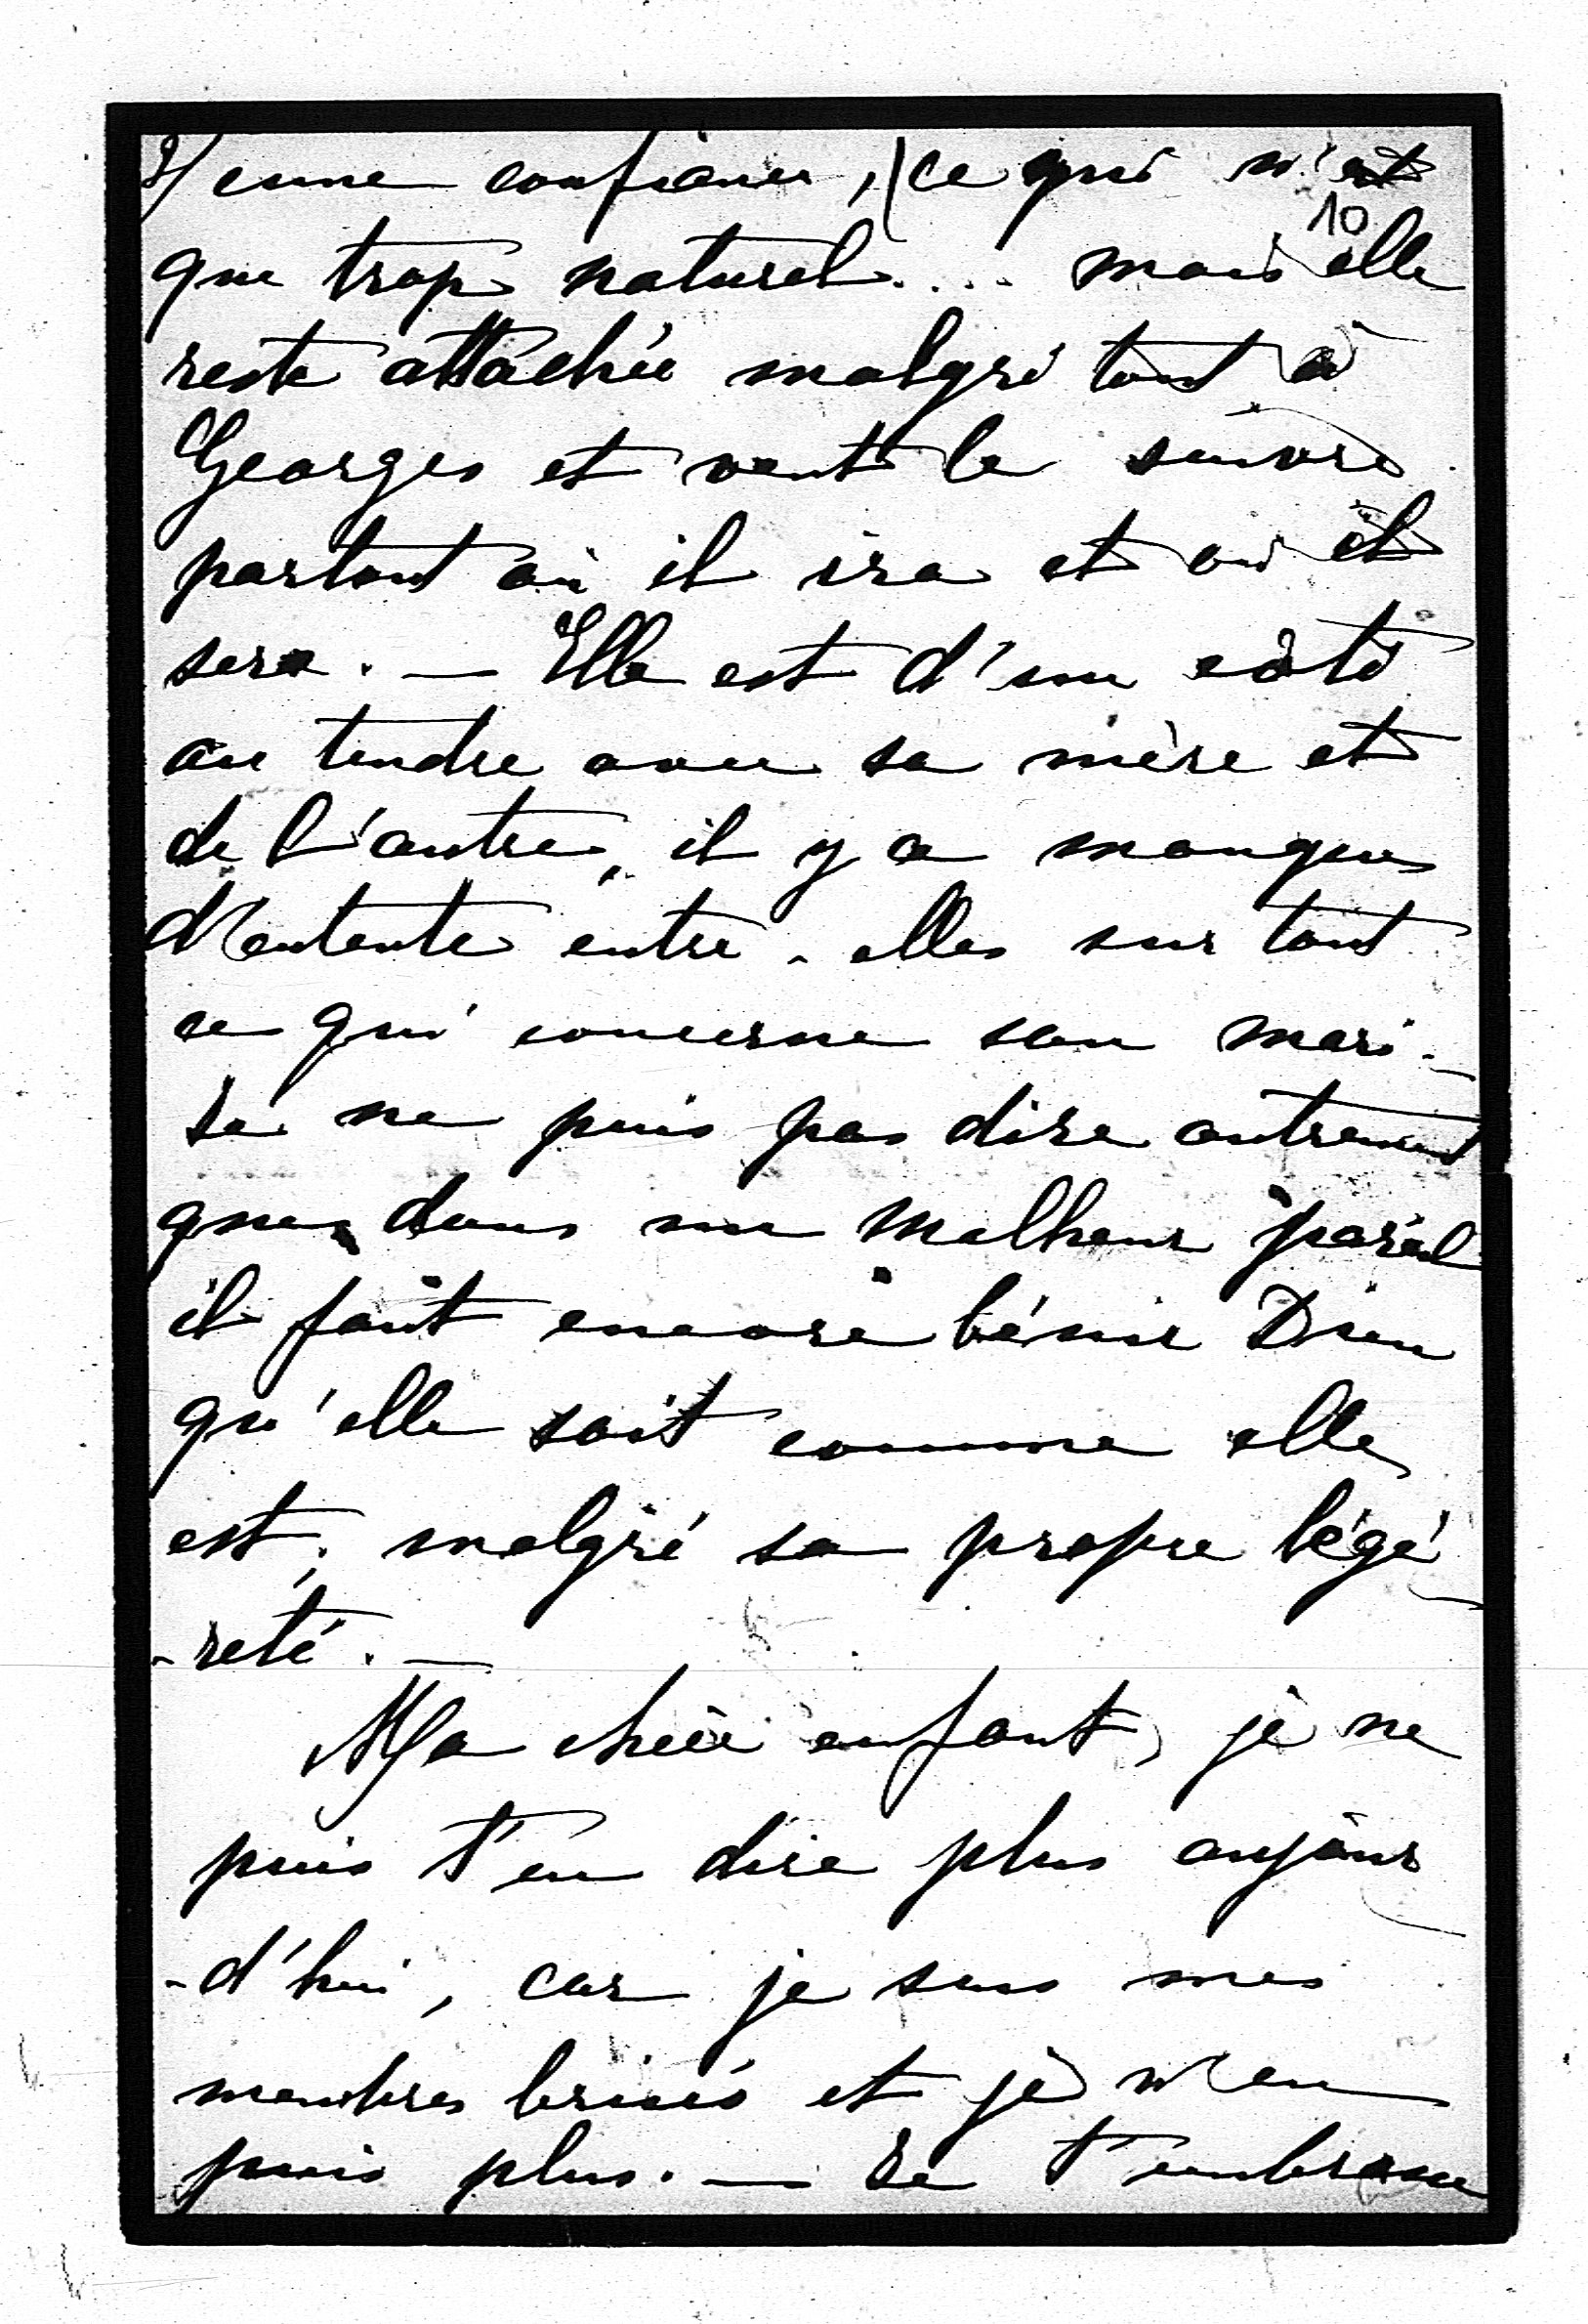 3/ cune confiance, / ce qui n'est
10
que trop naturel.... mais elle
reste attachée malgré tout à
Georges et veut le suivre
partout où il ira et où il
sera. — Elle est d'un côté
tendre avec sa mère et
de l'autre, il y a manque
d'entente entre-elles sur tout
ce qui concerne son mari. —
Je ne puis pas dire autrement
que dans un malheur pareil
il faut encore bénir Dieu
qu'elle soit comme elle
est, malgré sa propre légè-
-reté. —
Ma chère enfant, je ne
puis t'en dire plus aujour-
-d'hui, car je suis mes
membres brisés et je n'en
puis plus. — Je t'embrasse